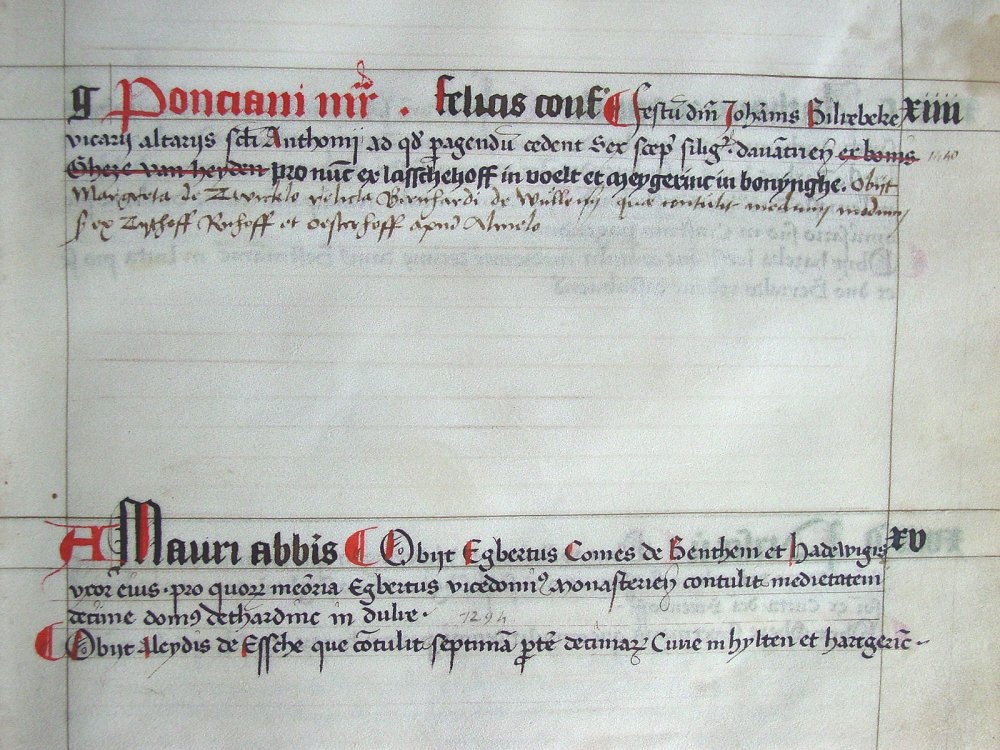 g Ponciani mr̄ . felicis conf̄ ¶ festū dn̄i Johānis Bilrebeke xiiii
vicarij altarijs sct̄i Anthonij ad qd̄ peragendū cedent Sex scep̄ silig̉. davātrieñ ex bonis 1440
Gheze van heyden pro nūc ex lasschehoff in voelt et meygerinc in bonynghe. Obijt
Margreta de Twicklo relicta Bernhardi de Wullen que contulit medium modium
s ex Tijthoff Richoff et oesterhoff apud Almelo
A Mauri abbīs ¶ Obijt Egbertus Comes de Benthem et Hadewigis xv
vxor eius . pro quorꝝ meōria Egbertus vicedomīꝰ Monasterieñ contulit medietatem
decime domꝰ dethardinc in dulre .
1294
¶ Obijt Aleydis de Essche que cōtulit septimā ꝑtē decimarꝝ Curie in hylten et hartgerīc .